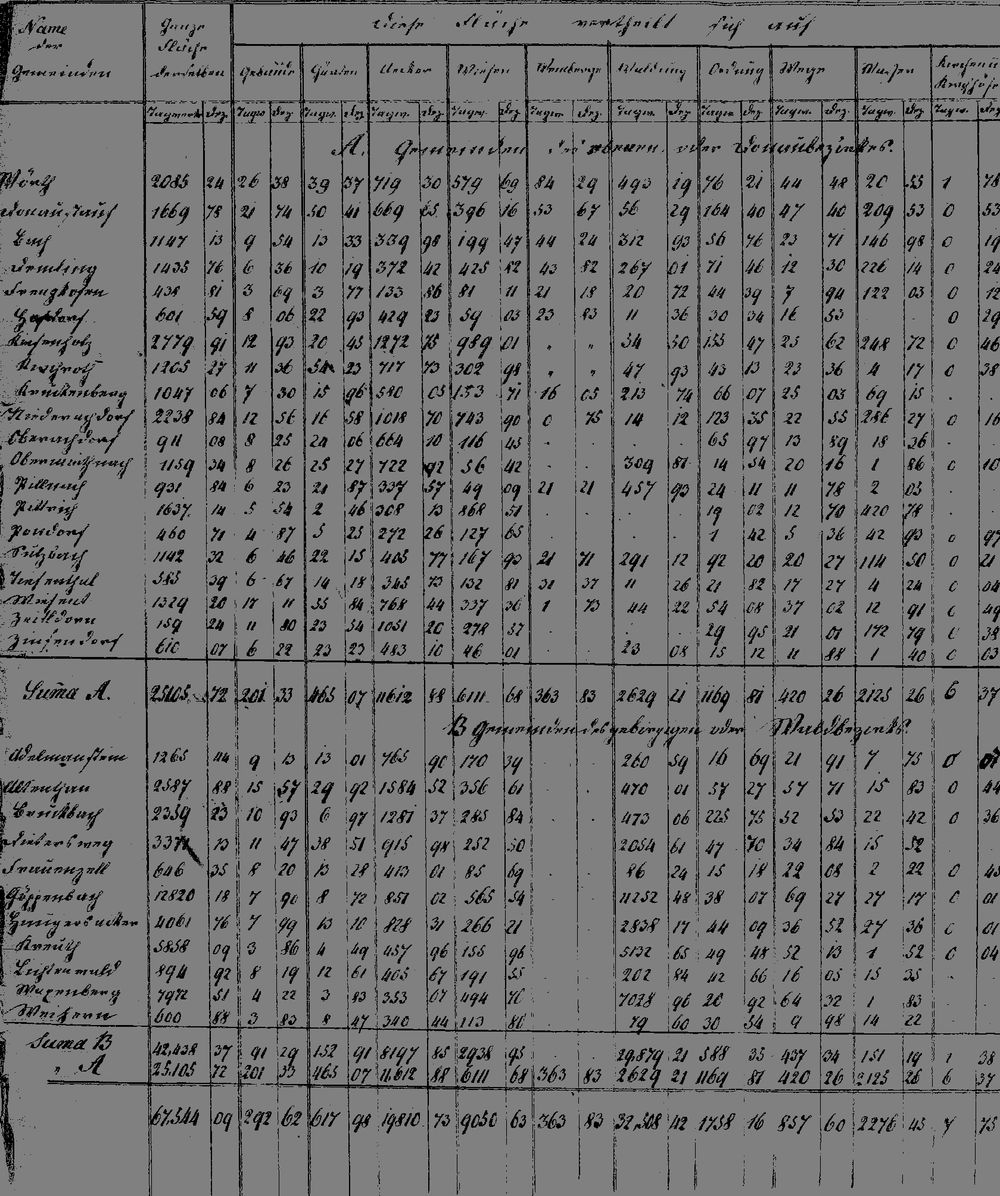 Name der Gemeinden Ganze Fläche derselben Diese Fläche vertheilt sich auf
Gebäude Gärten Aecker Wiesen Weinberge Waldung Oednung Wege Wasser Kirchen u Kirchhöfe
Tagwerk Dez. Tagw. Dez. Tagw. Dez. Tagw. Dez. Tagw. Dez. Tagw. Dez. Tagw. Dez. Tagw. Dez. Tagw. Dez. Tagw. Dez. Tagw. Dez.
A. Gemeinden des ebenen oder Donaubezirkes.
Wörth 2085 24 26 38 39 37 719 30 579 69 84 29 493 19 76 21 44 48 20 55 1 78
Donaustauf 1669 78 21 74 50 41 669 65 396 16 53 67 56 29 164 40 47 40 209 53 0 53
Bach 1147 13 9 54 13 33 339 98 199 47 44 24 312 93 56 76 23 71 146 98 0 19
Demling 1435 76 6 36 10 19 372 42 425 82 43 82 267 01 71 46 12 30 226 14 0 24
Frengkofen 438 81 3 69 3 77 133 86 81 11 21 18 20 72 44 39 7 94 122 03 0 12
601 59 8 06 22 93 429 23 59 03 23 83 11 36 30 34 16 53 0 29
Kiefenholz 2779 91 12 93 20 45 1272 75 989 01 " " 54 50 155 47 25 62 248 72 0 46
Kirchroth 1205 27 11 36 54 23 717 73 302 98 " " 47 93 43 13 23 36 4 17 0 38
Kruckenberg 1047 06 7 30 15 96 580 05 153 71 16 05 213 74 66 07 25 03 69 15 . .
Niederachdorf 2238 84 12 56 16 58 1018 70 743 90 0 75 14 12 123 35 22 55 286 27 0 16
Oberachdorf 911 08 8 25 24 06 664 10 116 45 . . . . 65 97 13 89 18 36 . .
Oberminthnach 1159 34 8 26 25 27 722 92 56 42 . . 309 87 14 54 20 16 1 86 0 10
Pillnach 931 84 6 23 21 87 337 57 49 09 21 21 457 93 24 11 11 78 2 05 . .
Pittrich 1637 14 5 54 2 46 308 13 868 51 . . . . 19 02 12 70 420 78 . .
Pondorf 460 71 4 87 5 25 272 26 127 65 . . . . 1 42 5 36 42 93 0 97
Sulzbach 1142 32 6 46 22 15 405 77 167 93 21 71 291 12 92 20 20 27 114 50 0 21
Tiefenthal 585 39 6 67 14 18 345 73 132 81 31 37 11 26 21 82 17 27 4 24 0 04
Wiesent 1329 20 17 11 55 84 768 44 337 36 1 73 44 22 54 08 37 02 12 91 0 49
Zeitldorn 159 24 11 80 23 54 1051 20 278 57 . . . . 29 95 21 01 172 79 0 38
Zinzendorf 610 07 6 22 23 23 483 10 46 01 23 08 15 12 11 88 1 40 0 03
Suma A. 25105 72 201 33 465 07 11612 88 6111 68 363 83 2629 21 1169 81 420 26 2125 26 6 37
B Gemeinden des gebirgigen oder Waldbezirks.
Adelmanstein 1265 44 9 13 13 01 765 90 170 39 . . 260 59 16 69 21 91 7 75 0 07
Altenthan 2587 88 15 57 29 92 1584 52 356 61 . . 470 01 57 27 57 71 15 83 0 44
Bruckbach 2359 23 10 93 6 97 1281 37 285 84 . . 473 06 225 75 52 53 22 42 0 36
Dietersweg 3371 13 11 47 38 51 915 98 252 50 . . 2054 61 47 70 34 84 15 52
Frauenzell 646 35 8 20 13 28 413 01 85 69 . . 86 24 15 18 22 08 2 22 0 45
Göppenbach 12820 18 7 90 8 72 851 02 565 54 . . 11252 48 38 07 69 27 27 17 0 01
4061 76 7 99 13 10 828 31 266 21 . . 2838 17 44 09 36 52 27 36 0 01
Kreuth 5858 09 3 86 4 49 457 96 155 96 . . 5132 65 49 48 52 13 1 52 0 04
Lichtenwald 894 92 8 19 12 61 405 67 191 55 . . 202 84 42 66 16 05 15 35 . .
7972 51 4 22 3 83 353 67 494 76 . . 7028 96 20 92 64 32 1 83
600 88 3 83 8 47 340 44 113 80 . . 79 60 30 54 9 98 14 22
Suma B 42,438 37 91 29 152 91 8197 85 2938 95 . . 29,879 21 588 35 437 34 151 19 1 38
" A 25105 72 201 33 465 07 11612 88 6111 68 363 83 2629 21 1169 81 420 26 2125 26 6 37
67,544 09 292 62 617 98 19810 73 9050 63 363 83 32,508 42 1758 16 857 60 2276 45 7 75